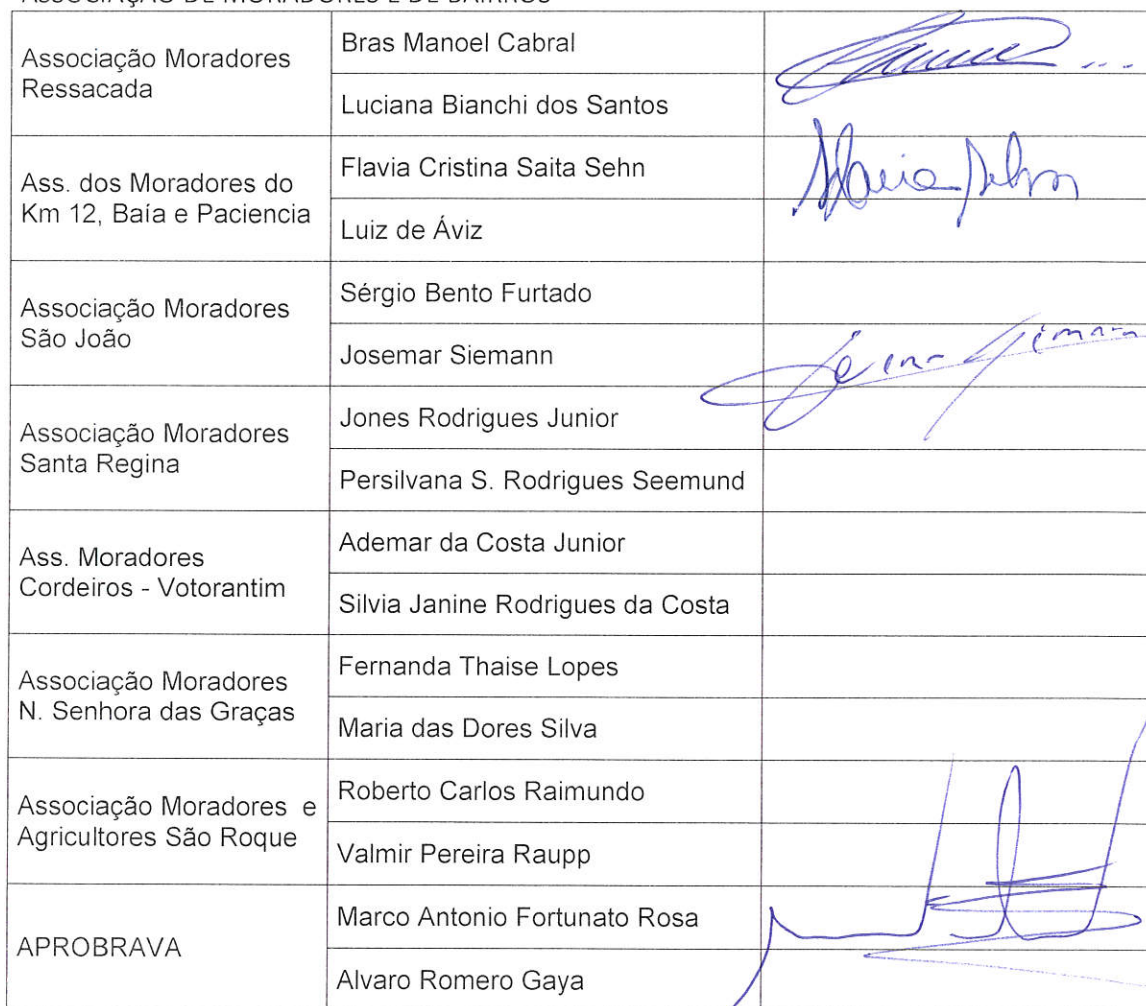 ASSOCIAÇÃO DE MORADORES E DE BAIRROS
Associação Moradores
Ressacada
Bras Manoel Cabral
Luciana Bianchi dos Santos
Ass. dos Moradores do
Km 12, Baía e Paciencia
Flavia Cristina Saita Sehn
Luiz de Áviz
Associação Moradores
São João
Sérgio Bento Furtado
Josemar Siemann
Associação Moradores
Santa Regina
Jones Rodrigues Junior
Persilvana S. Rodrigues Seemund
Ass. Moradores
Cordeiros - Votorantim
Ademar da Costa Junior
Silvia Janine Rodrigues da Costa
Associação Moradores
N. Senhora das Graças
Fernanda Thaise Lopes
Maria das Dores Silva
Associação Moradores e
Agricultores São Roque
Roberto Carlos Raimundo
Valmir Pereira Raupp
APROBRAVA
Marco Antonio Fortunato Rosa
Alvaro Romero Gaya